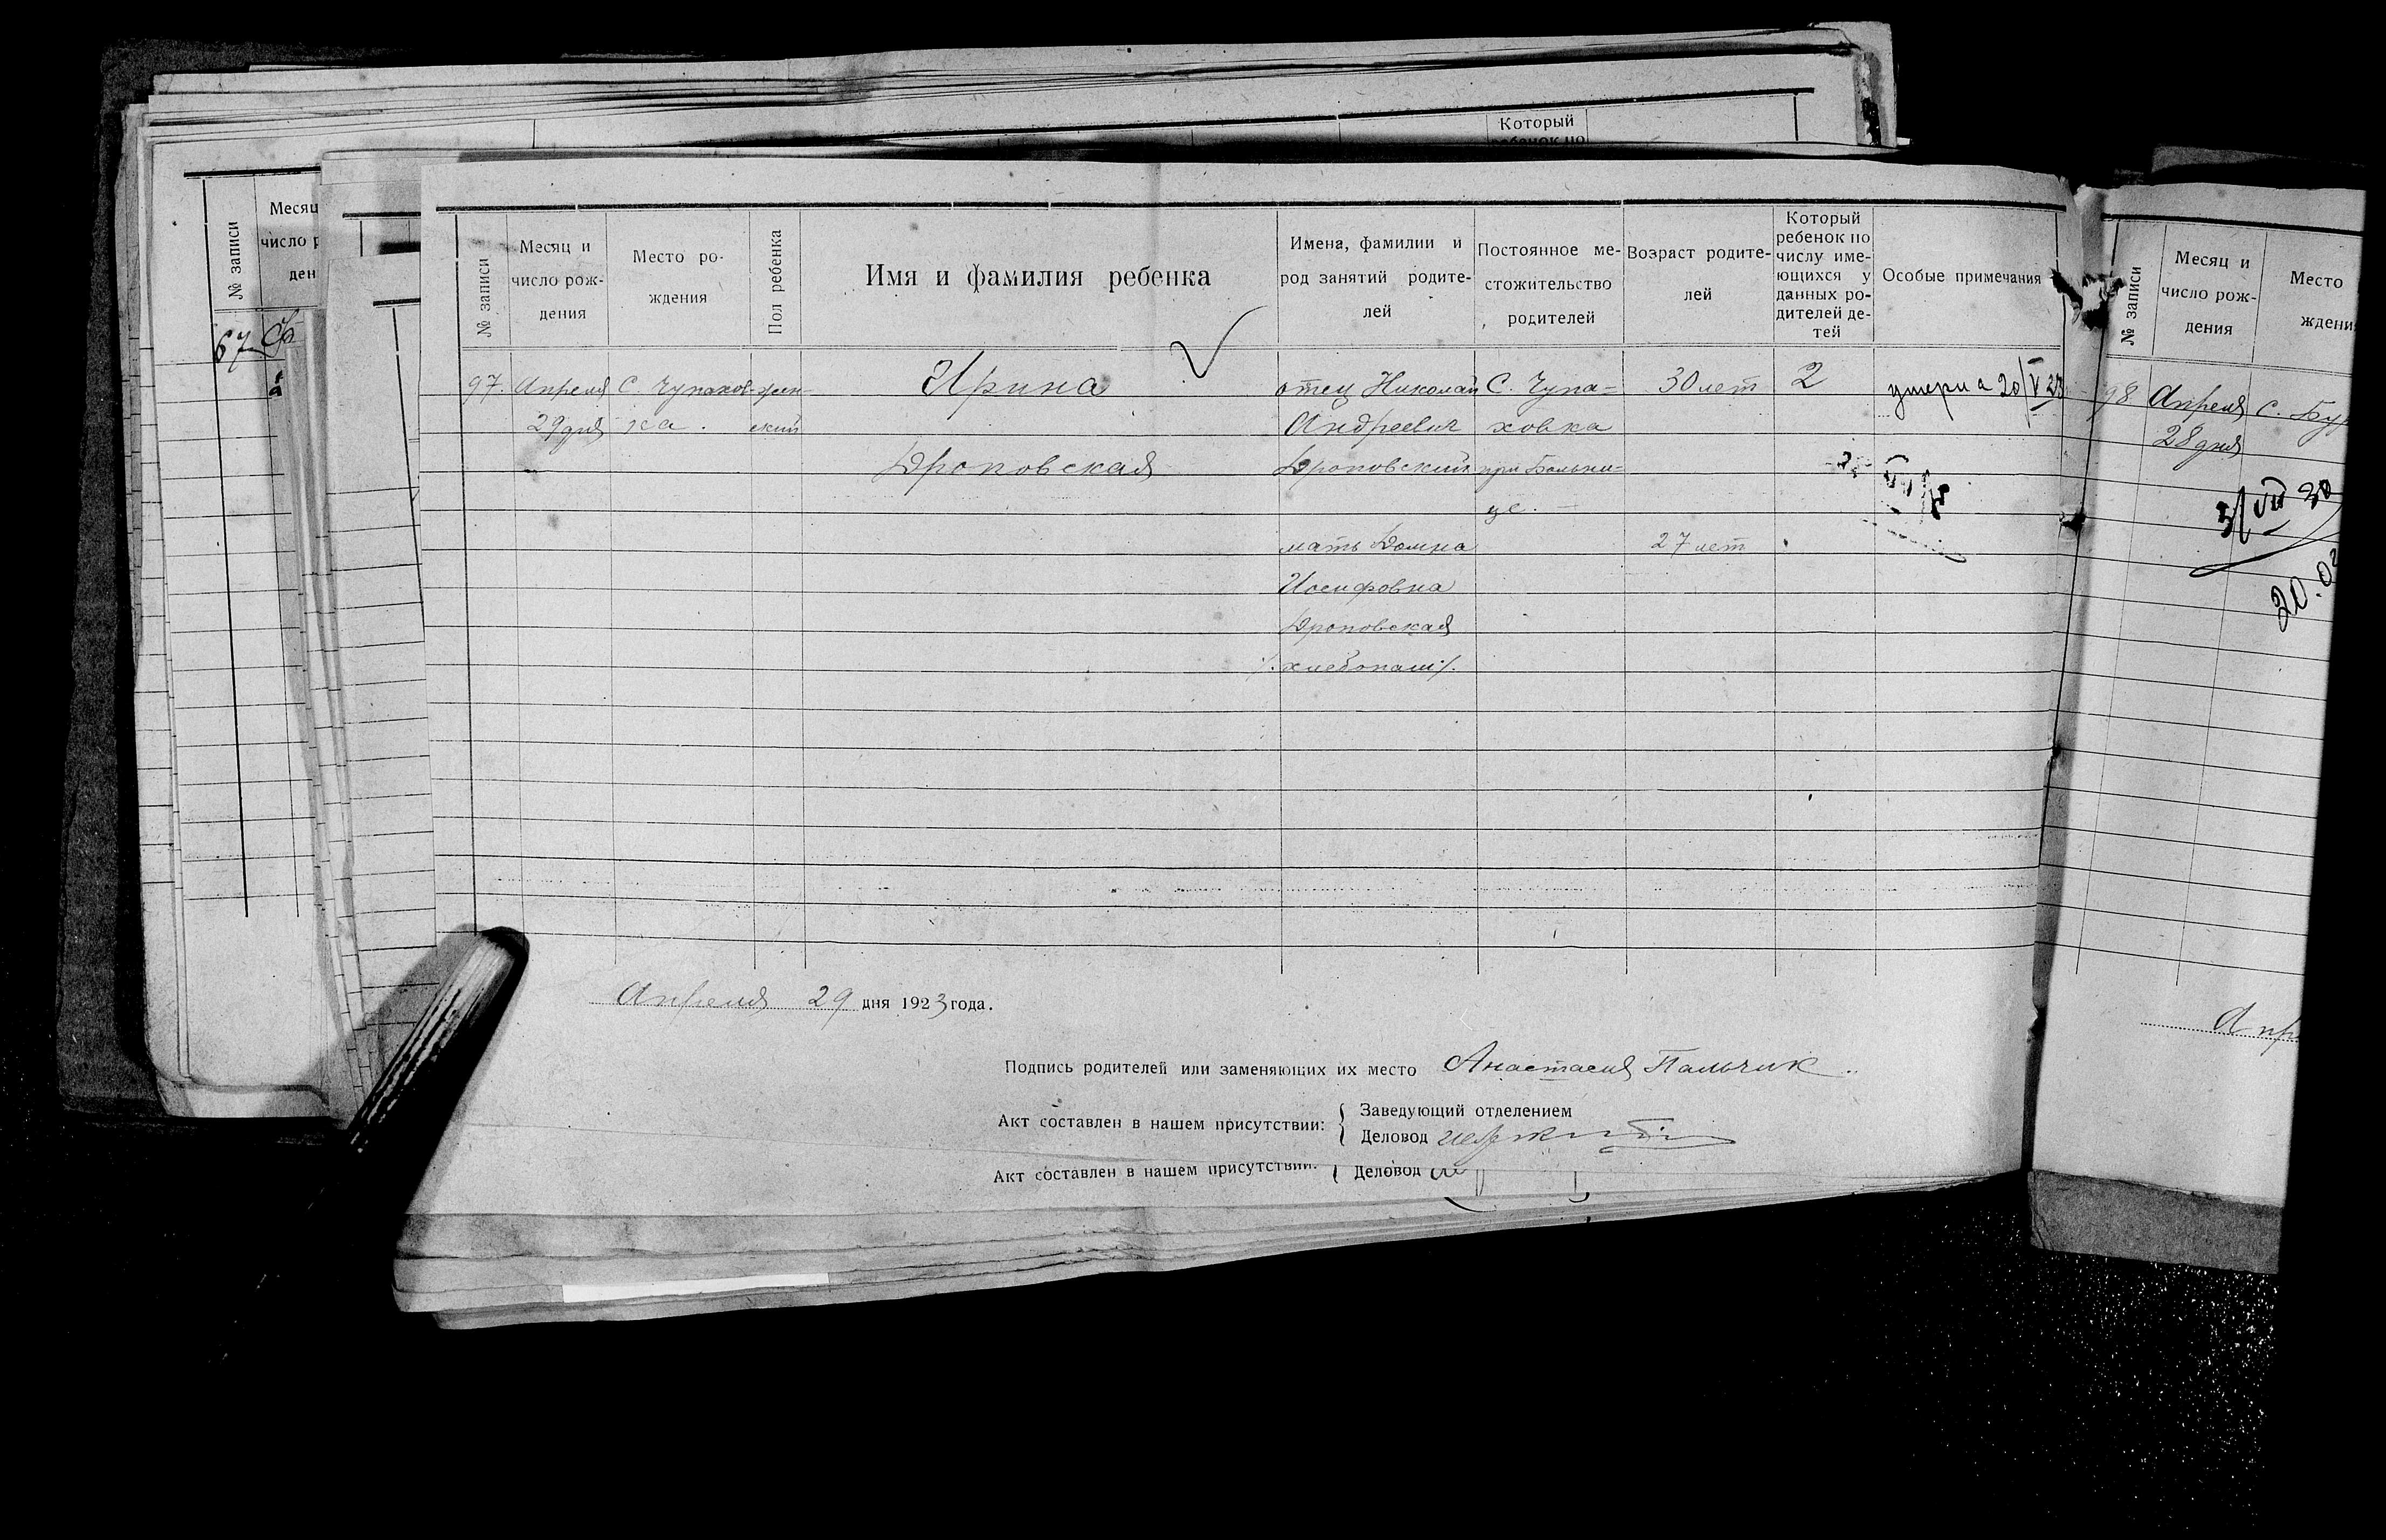 Который
ребенок по
№ записи
Месяц
число р
ден
67
№ записи
Месяц и
число рож-
дения
Место ро-
ждения
Пол ребенка
Имя и фамилия ребенка
Имена, фамилии и
род занятий родите-
лей
Постоянное ме-
стожительство
родителей
Возраст родите-
лей
Который
ребенок по
числу име-
ющихся у
данных ро-
дителей де-
тей
Особые примечания
97.
Апреля
29 дня
С. Чупахов-
ка.
жен-
ский
Ирина
Дроновская
отец Николай
Андреевич
Дроновский
мать Домна
Иосифовна
Дроновская
хлебопаш.
С. Чупа=
ховка
при Больни=
це.
30 лет
27 лет
2
умерла 20/V 23
Апреля 29 дня 1923 года.
Подпись родителей или заменяющих их место Анастасия Пальчик
Акт составлен в нашем присутствии:
Заведующий отделением
Деловод
Акт составлен в нашем присутствии:
Деловод
№ записи
Месяц и
число рож-
дения
Место
ждени
98
Апреля
28 дня
с. Бур
3/VIII 30
20.0
Апр